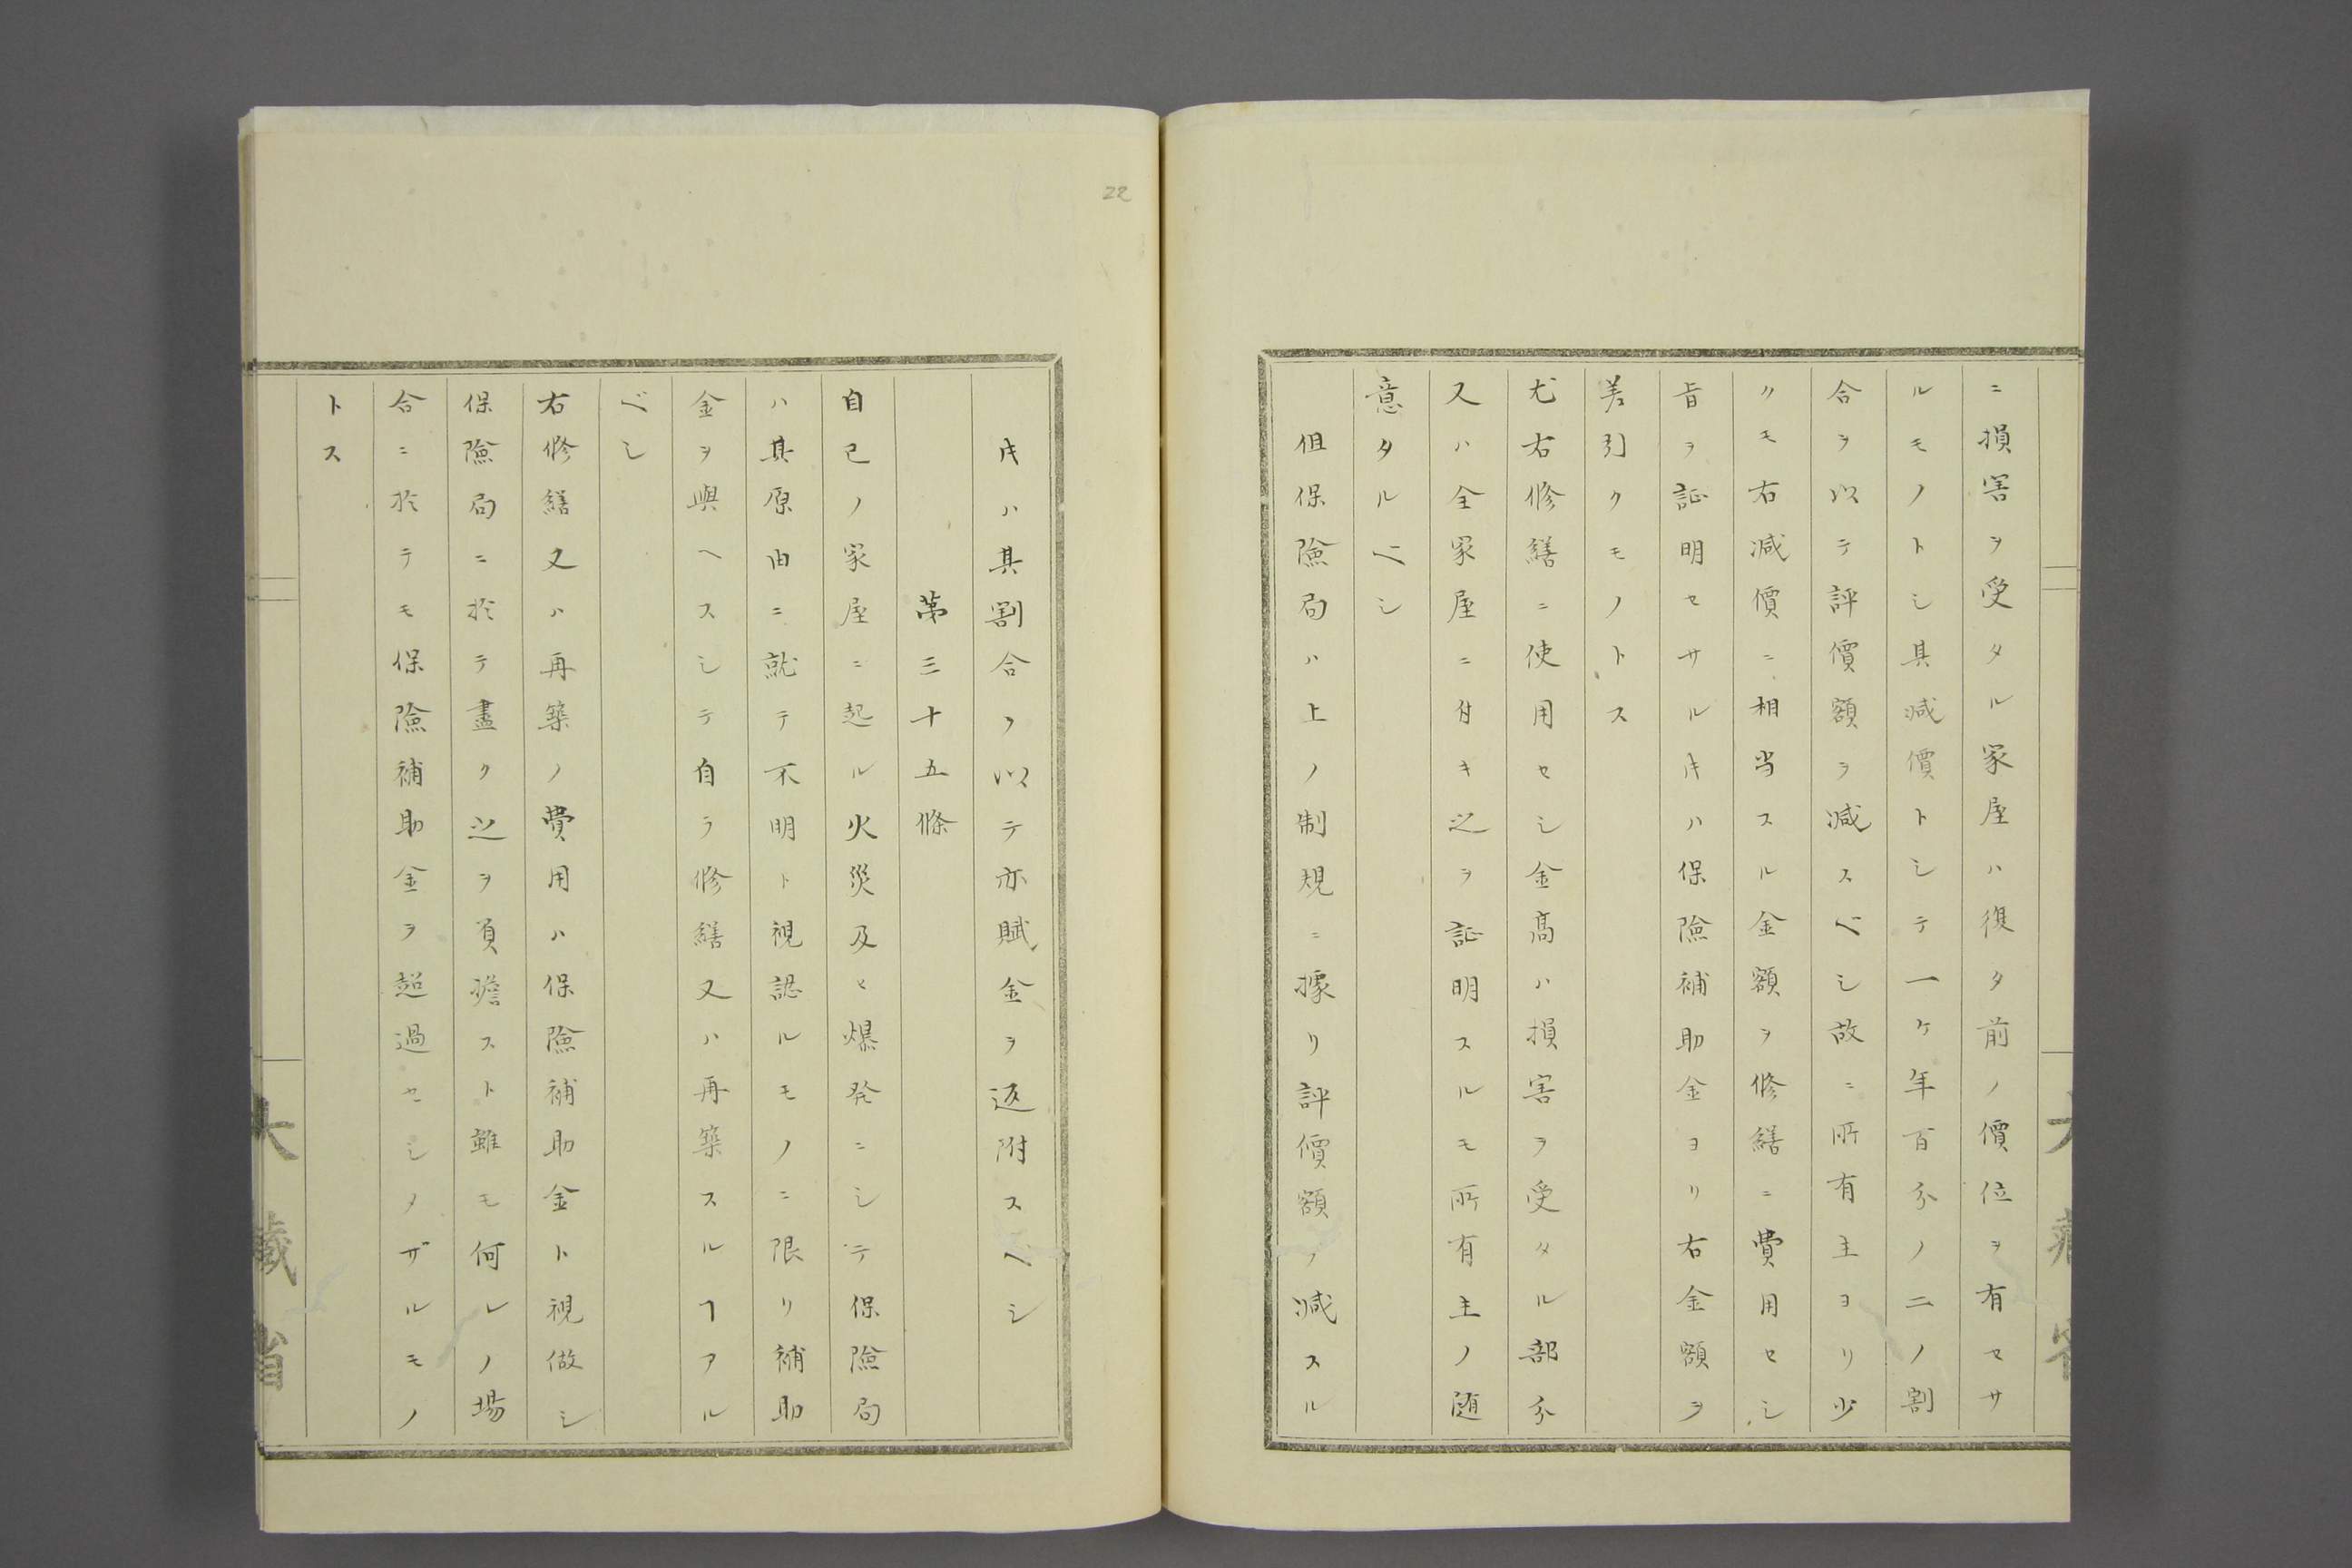 ニ損害ヲ受タル家屋ハ復タ前ノ價位ヲ有セサ
ルモノトシ其減價トシテ一ケ年百分ノ二ノ割
合ヲ以テ評價額ヲ減スベシ故ニ所有主ヨリ少
クモ右減價ニ相当スル金額ヲ修繕ニ費用セシ
旨ヲ証明セサルキハ保險補助金ヨリ右金額ヲ
差引クモノトス
尤右修繕ニ使用セシ金高ハ損害ヲ受タル部分
又ハ全家屋ニ付キ之ヲ証明スルモ所有主ノ随
意タルベシ
但保險局ハ上ノ制規ニ據リ評價額ノ減スル
キハ其割合ヲ以テ亦賦金ヲ返附スベシ
第三十五條
自己ノ家屋ニ起ル火災及ヒ爆発ニシテ保險局
ハ其原由ニ就テ不明ト視認ルモノニ限リ補助
金ヲ與ヘスシテ自ラ修繕又ハ再築スルヿアル
ベシ
右修繕又ハ再築ノ費用ハ保險補助金ト視做シ
保險局ニ於テ盡ク之ヲ負擔スト雖モ何レノ場
合ニ於テモ保險補助金ヲ超過セシメザルモノ
トス
大藏省
22